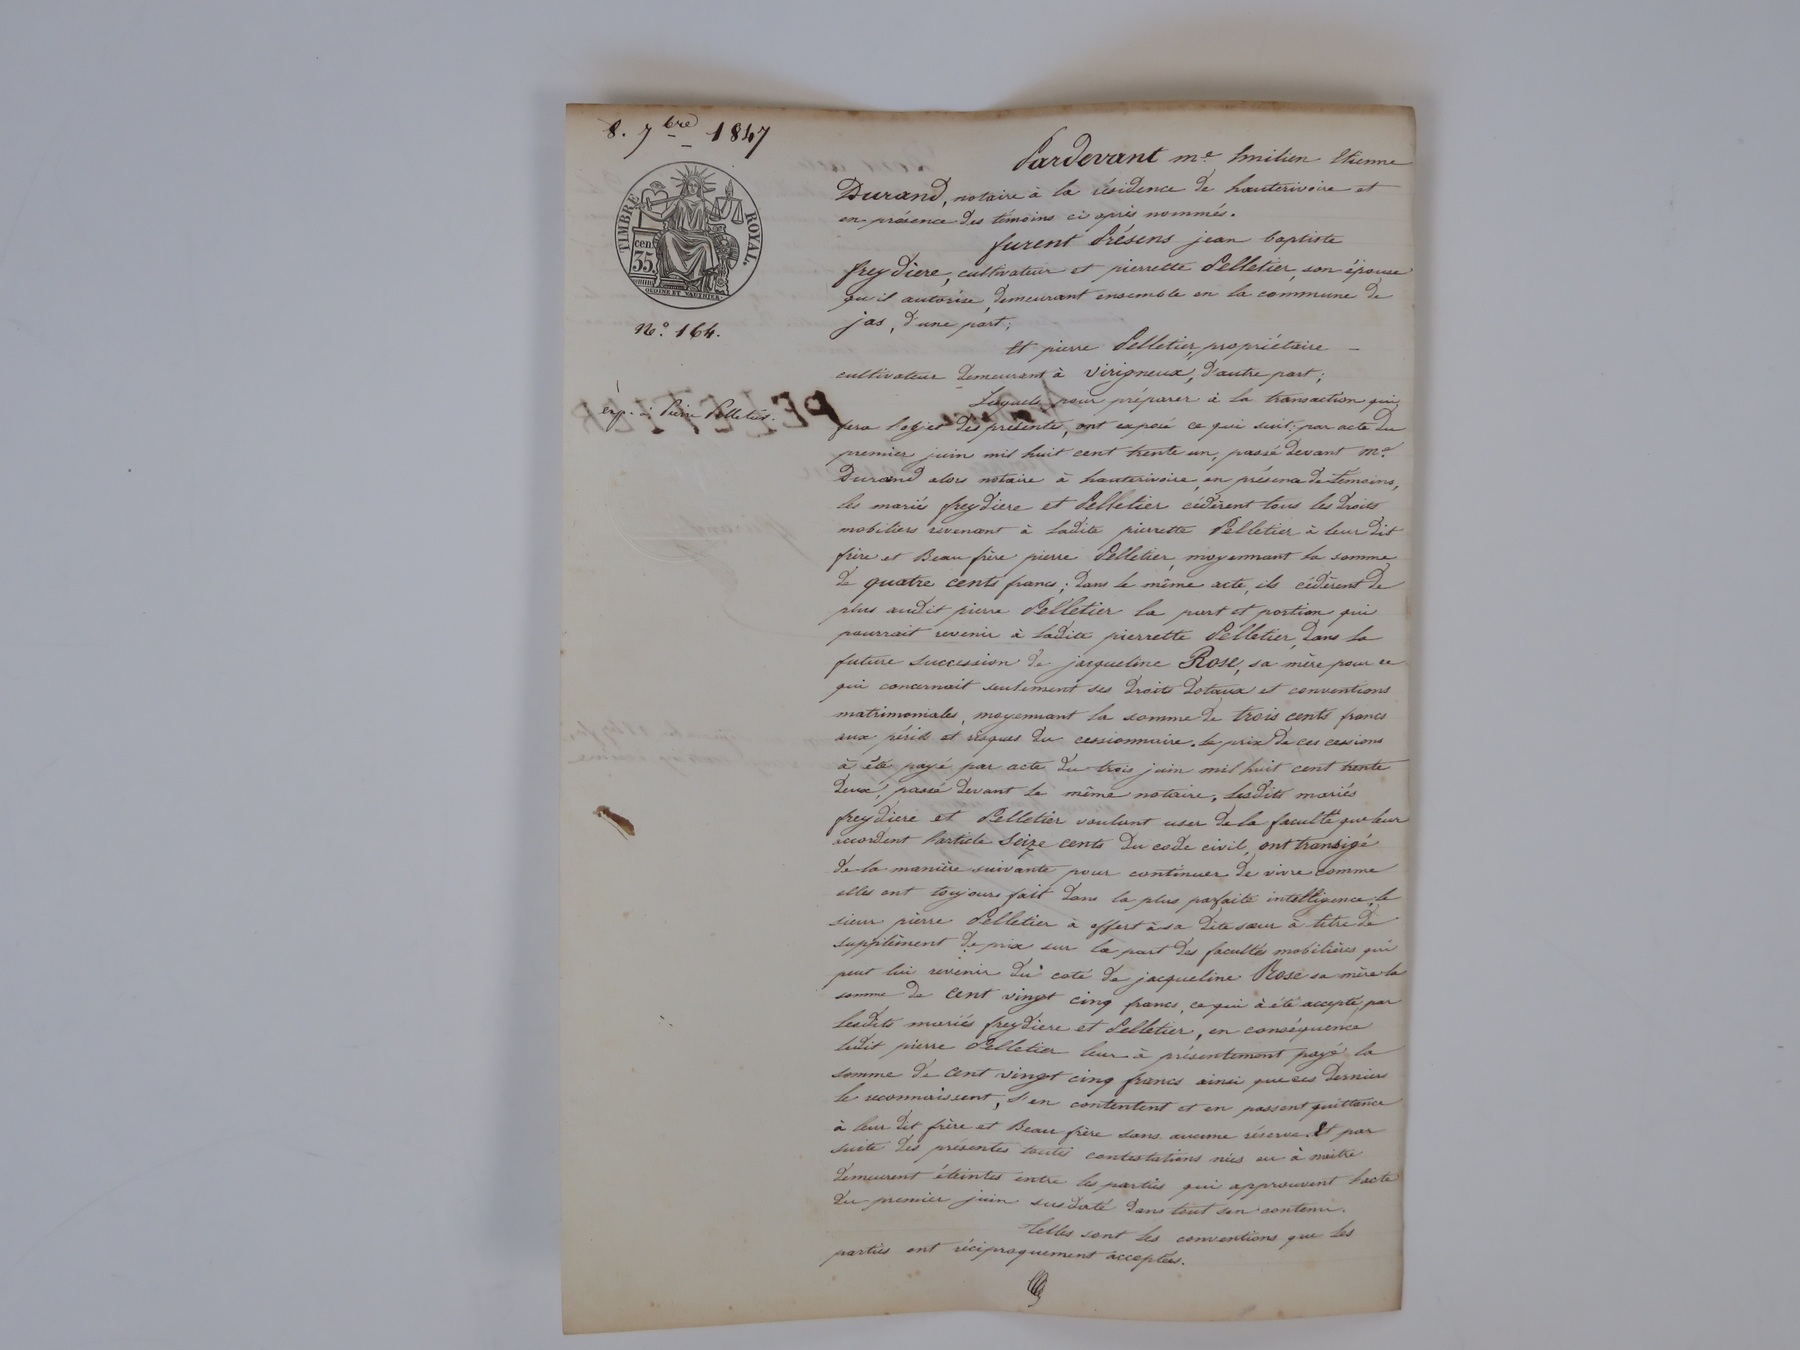 8. 7bre 1847
TIMBRE ROYAL.
cen.
35.
OUDINE ET VAUTHIER
N.o 164.
exp. à Pierre Pelletier.
Pardevant me. Emilien Etienne
Durand, notaire à la résidence de hauterivoire et
en présence des témoins ci après nommés.
furent Présens jean baptiste
freydiere, cultivateur et pierrette Pelletier, son épouse
qu'il autorise, demeurant ensemble en la commune de
jas, d'une part;
Et pierre Pelletier, propriétaire
cultivateur demeurant à Virigneux, d'autre part;
Lesquels pour préparer à la transaction qui
fera l'objet des présentes, ont exposé ce qui suit: par acte du
premier juin mil huit cent trente un, passé devant me.
Durand alors notaire à hauterivoire, en présence de témoins,
les mariés freydiere et Pelletier cédèrent tous les droits
mobiliers revenant à ladite pierrette Pelletier à leur dit
frère et Beau frère pierre Pelletier, moyennant la somme
de quatre cents francs; dans le même acte, ils cédèrent de
plus audit pierre Pelletier la part et portion qui
pourrait revenir à ladite pierrette Pelletier, dans la
future succession de jacqueline Rose, sa mère pour ce
qui concernait seulement ses droits dotaux et conventions
matrimoniales, moyennant la somme de trois cents francs
aux périls et risques du cessionnaire. le prix de ces cessions
à été payé par acte du trois juin mil huit cent trente
deux, passé devant le même notaire. Lesdits mariés
freydiere et Pelletier voulant user de la faculté que leur
accordent l'article Seize cents du code civil, ont transigé
de la manière suivante pour continuer de vivre comme
elles ont toujours fait dans la plus parfaite intelligence. le
sieur pierre Pelletier à offert à sa dite sœur à titre de
supplément de prix sur la part des facultés mobilières qui
peut lui revenir du coté de jacqueline Rose sa mère la
somme de cent vingt cinq francs, ce qui à été accepté par
lesdits mariés freydiere et Pelletier, en conséquence
ledit pierre Pelletier leur à présentement payé la
somme de cent vingt cinq francs ainsi que ces derniers
le reconnaissent, s'en contentent et en passent quittance
à leur dit frère et Beau frère sans aucune réserve. Et par
suite des présentes toutes contestations nées ou à naître
demeurent éteintes entre les parties qui approuvent l'acte
du premier juin susdaté dans tout son contenu.
Telles sont les conventions que les
parties ont réciproquement acceptées.